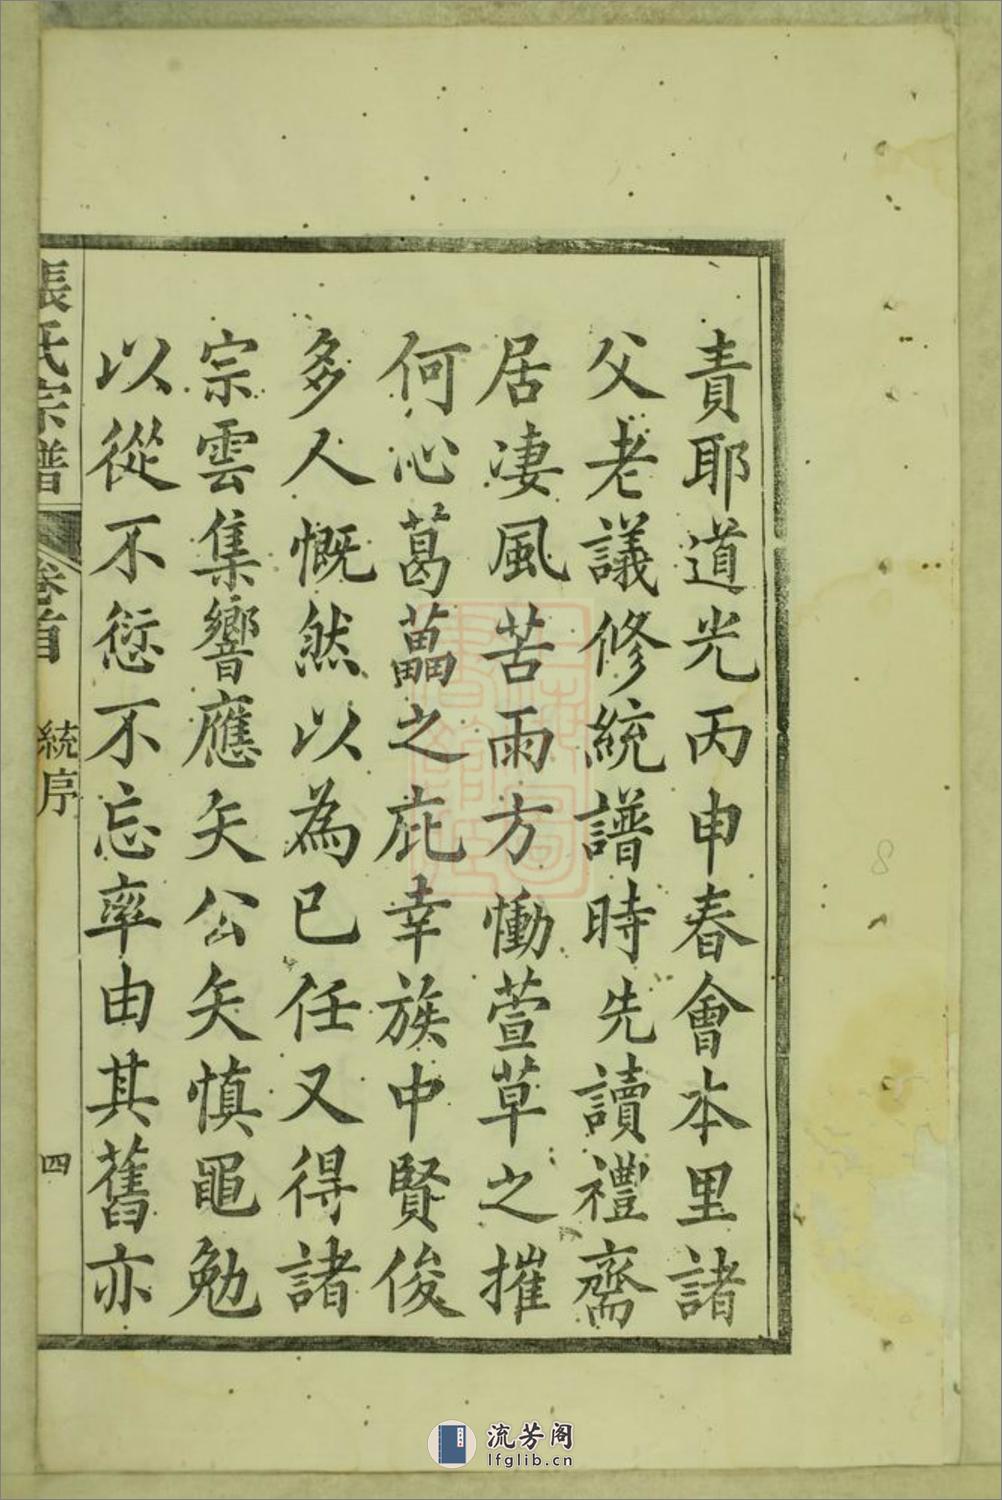 責耶道光丙申春會本里諸
父老議修統譜時先讀禮齋
居凄風苦雨方慟萱草之摧
何心葛藟之庇幸族中賢俊
多人慨然以為己任又得諸
宗雲集響應矢公矢慎黽勉
以從不愆不忘率由其舊亦
張氏宗譜 卷首 統序 四
8
流芳阁
lfglib.cn